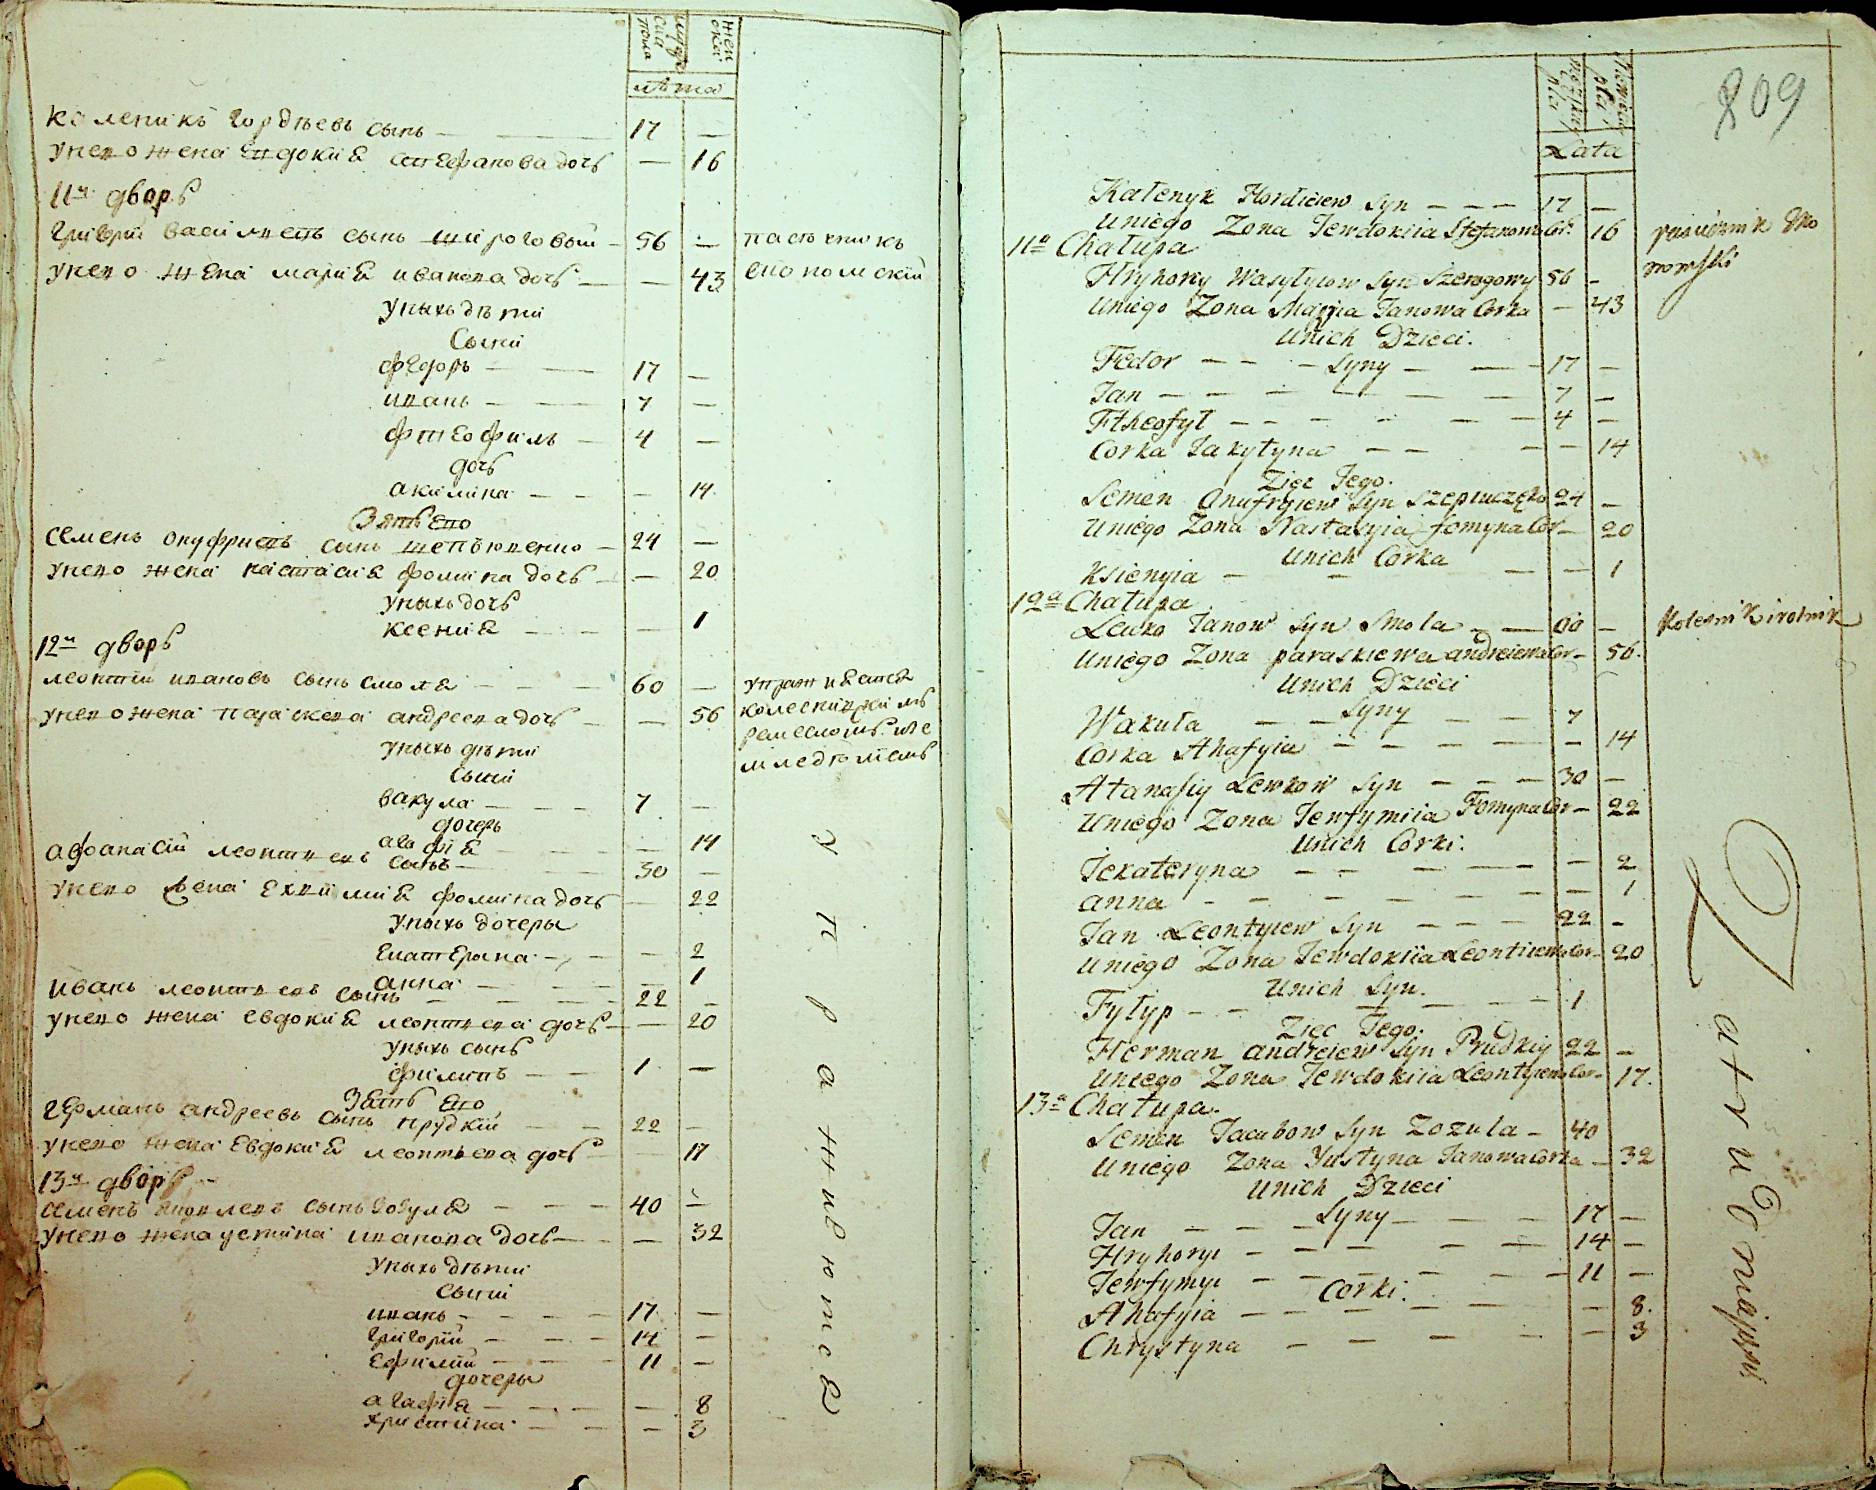 мужеска пола
женска
лѣта
каленикъ гордѣевъ сынъ — 17 —
унего жена евдокия стефанова дочь — 16
11й дворъ
григорій василиевъ сынъ широговый — 56 — пасѣчникъ
унего жена мария иванова дочь — 43 економскій
унихъ дѣти
сыни
федоръ — 17 —
иванъ — 7 —
фтеофилъ — 4 —
дочь
акилина — — 14
Зять его
семенъ онуфриевъ сынъ — 24 —
унего жена настасия фомина дочь — — 20
унихъ дочь
ксения — — 1
12й дворъ
леонтій ивановъ сынъ смола — 60 —
унего жена параскева андреева дочь — — 56
унихъ дѣти
сыни
вакула — 7 —
дочерь
агафія — — 14
афанасій леонтиевъ сынъ — 30 —
унего жена ехвимия фомина дочь — 22
унихъ дочеры
екатерына — — 2
анна — — 1
иванъ леонтиевъ сынъ — 22 —
унего жена евдокия леонтиева дочь — — 20
унихъ сынъ
филипъ — 1 —
Зять его
германъ андреевъ сынъ прудкій — 22 —
унего жена евдокия леонтьева дочь — 17
13й дворъ —
семенъ яковлевъ сынъ Зозуля — 40 —
унего жена устина иванова дочь — — 32
унихъ дѣти
сыни
иванъ — 17 —
григорій — 14 —
ефимій — 11 —
дочеры
агафія — — 8
христина — — 3
упражняются
809
Lata
Kałenyk Hordiiew Syn — — — 17 —
Uniego Zona Jewdokiia Stefanowa Cor. 16
11a Chałupa
Hryhory Wasylyiow Syn Szerogowy 56 —
Uniego Zona Maryia Janowa Corka — 43
Unich Dzieci.
Syny
Fedor — — — 17 —
Jan — — — 7 —
Ftheofył — — — 4 —
Corka Jakyłyna — — — 14
Zięc Jego.
Semen Onufryiew Syn 24 —
Uniego Zona Nastasyia fomyna Cor — 20
Unich Corka
Ksienyia — — — 1
12a Chałupa
Lewko Janow Syn Smola — — 60 — Kolesnik irolnik
Uniego Zona paraskiewa andreiewa Cor — 56.
Unich Dzieci
Syny
Wakuła — — 7
Corka Ahafyia — — — 14
Atanasiy Lewkow Syn — — — 30 —
Uniego Zona Jewfymiia Fomyna Cor — 22
Unich Corki.
Jekateryna — — — 2
anna — — — 1
Jan Leontyiew Syn — — — 22 —
Uniego Zona Jewdokiia Leontiiewa Cor — 20
Unich Syn.
Fyłyp — — — 1
Zięc Jego.
Herman andreiew Syn Prudkiy 22 —
Uniego Zona Jewdokiia Leontyiewa Cor — 17.
13a Chałupa.
Semen Jacubow Syn Zozula — 40
Uniego Zona Yustyna Janowa Corka — 32
Unich Dzieci
Syny
Jan — — — 17 —
Hryhoryi — — — 14 —
Jewfymyi — — — 11 —
Corki.
Ahafyia — — — 8.
Chrystyna — — — 3